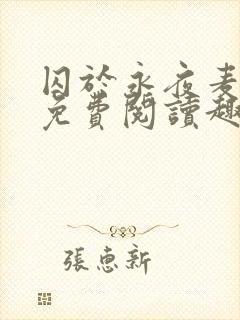 囚於永夜麦
免費閱讀趣
張惠新